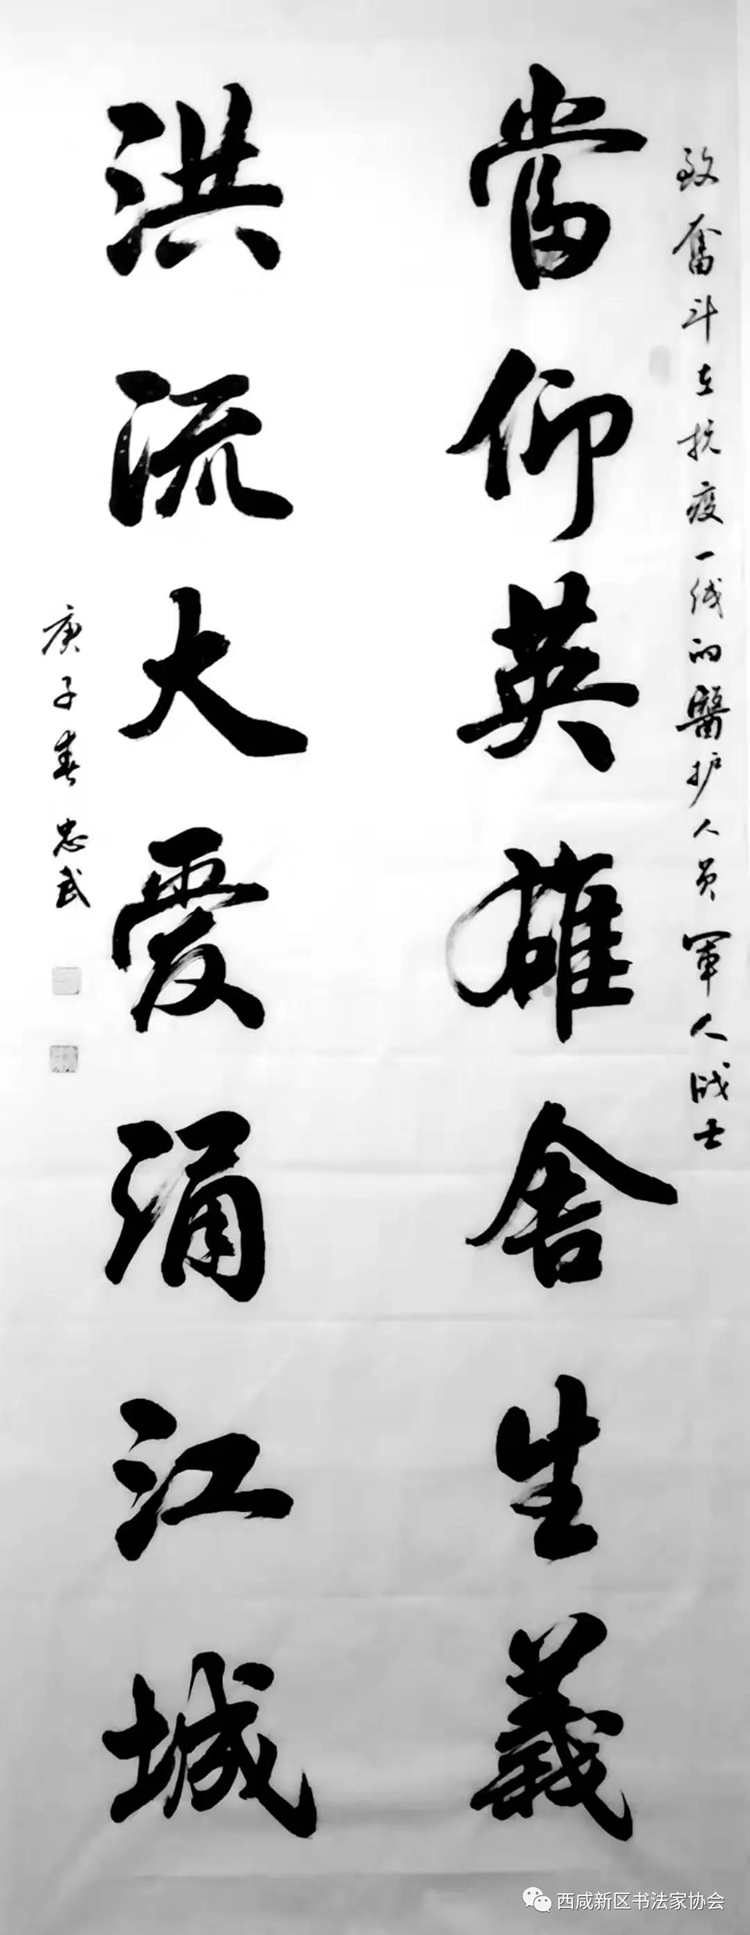 致奮斗在抗疫一线的醫护人员軍人战士
當仰英雄舍生義
洪流大爱涌江城
庚子春忠武
西咸新区书法家协会